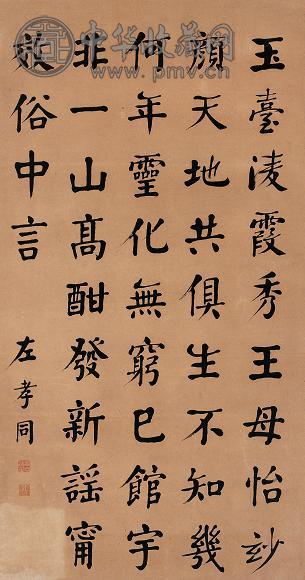 玉臺淩霞秀王母怡妙
顏天地共俱生不知幾
何年靈化無窮已館宇
非一山髙酣發新謠甯
效俗中言
左孝同
中华收藏网
www.pmv.cn